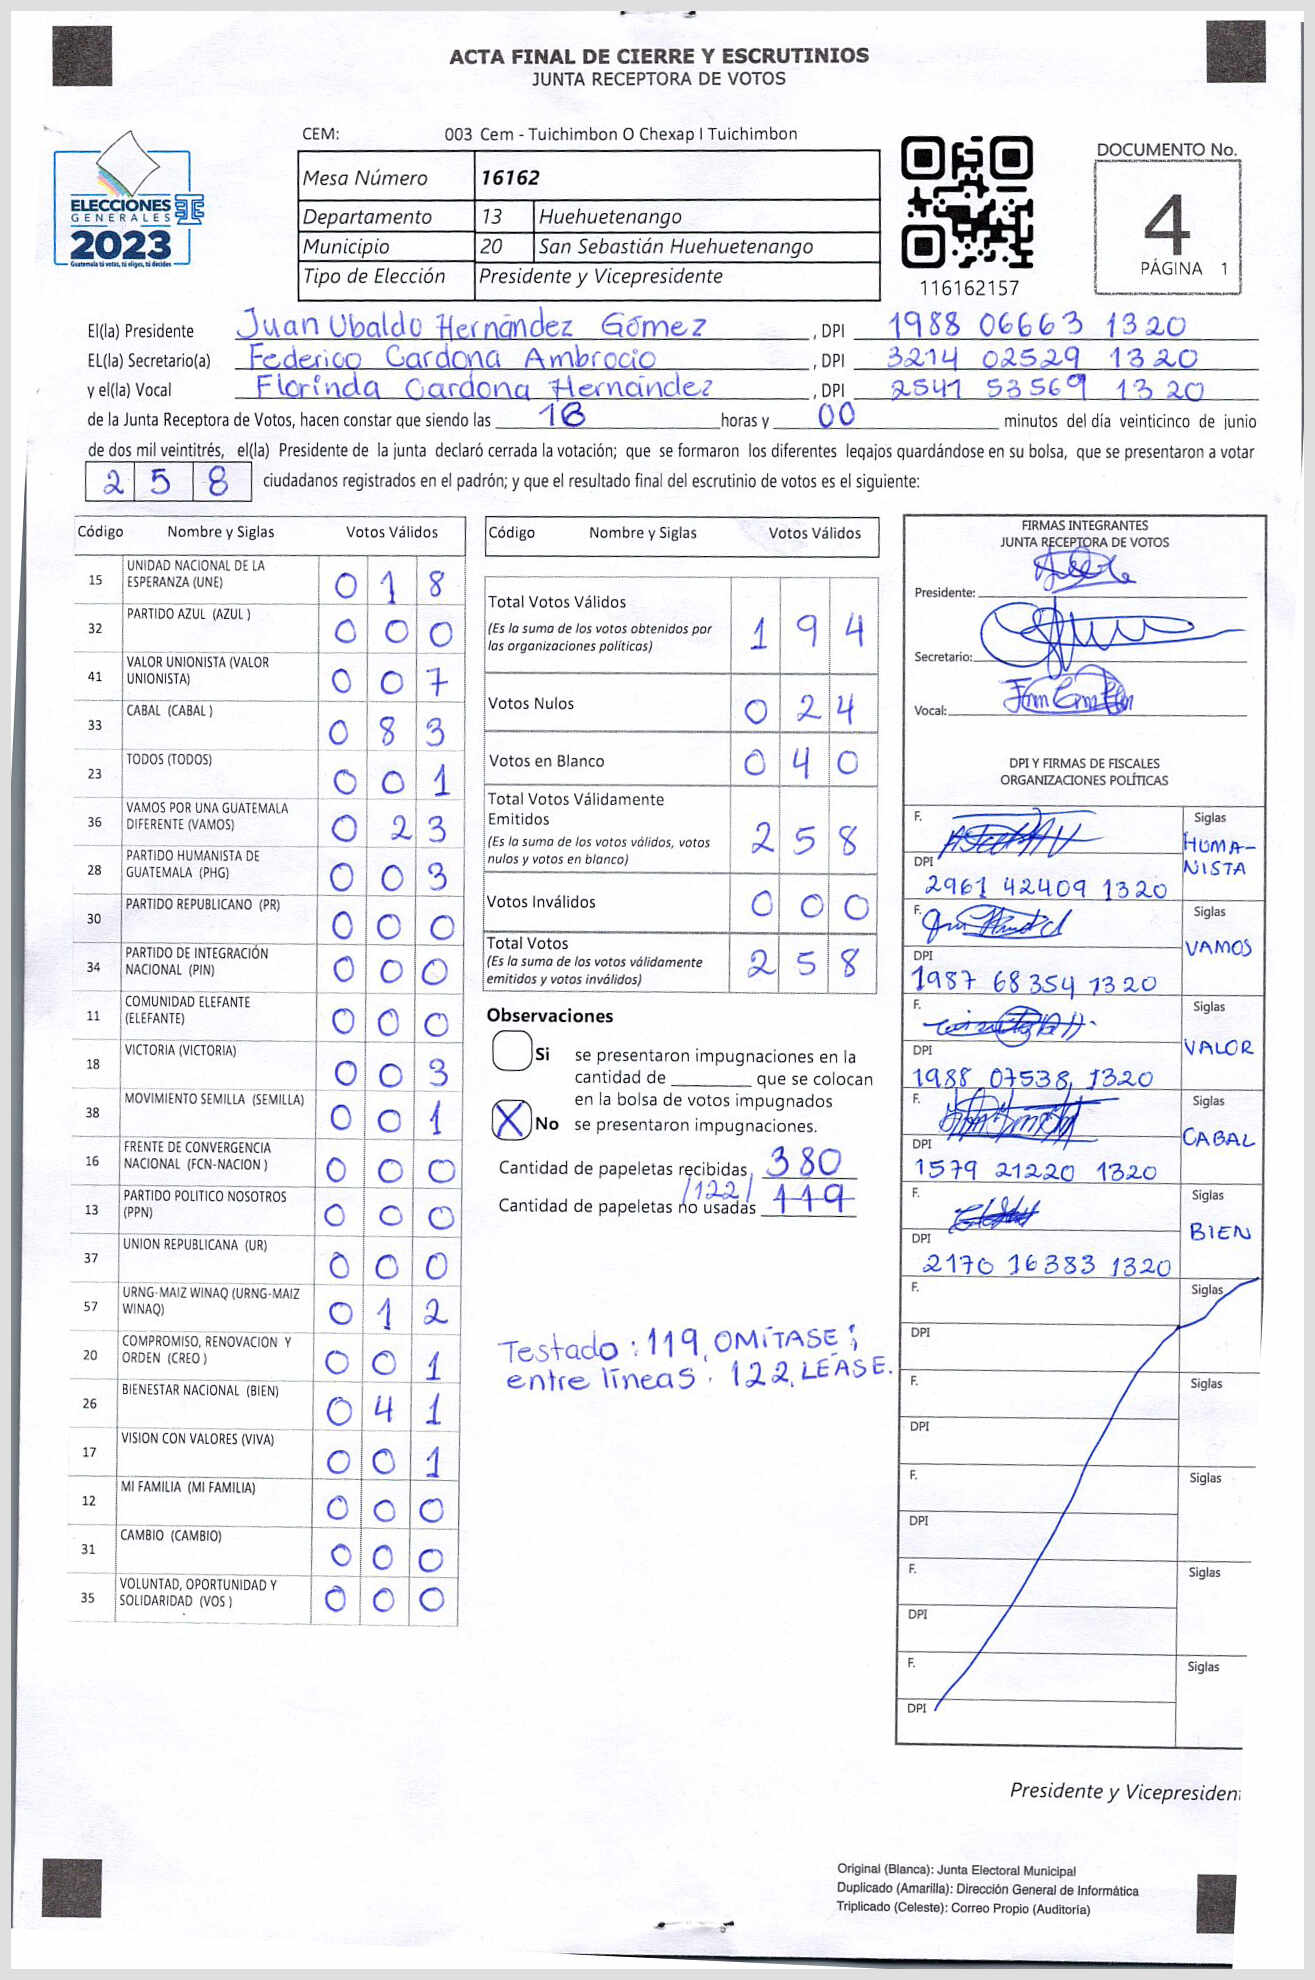 ACTA FINAL DE CIERRE Y ESCRUTINIOS
JUNTA RECEPTORA DE VOTOS
CEM: 003 Cem - Tuichimbon O Chexap I Tuichimbon
ELECCIONES
GENERALES
2023
Guatemala tú votas, tú eliges, tú decides
Mesa Número 16162
Departamento 13 Huehuetenango
Municipio 20 San Sebastián Huehuetenango
Tipo de Elección Presidente y Vicepresidente
116162157
DOCUMENTO No.
4
PÁGINA 1
El(la) Presidente Juan Ubaldo Hernández Gómez , DPI 1988 06663 1320
EL(la) Secretario(a) Federico Cardona Ambrocio , DPI 3214 02529 1320
y el(la) Vocal Florinda Cardona Hernández , DPI 2541 53569 1320
de la Junta Receptora de Votos, hacen constar que siendo las 18 horas y 00 minutos del día veinticinco de junio
de dos mil veintitrés, el(la) Presidente de la junta declaró cerrada la votación; que se formaron los diferentes legajos guardándose en su bolsa, que se presentaron a votar
2 5 8 ciudadanos registrados en el padrón; y que el resultado final del escrutinio de votos es el siguiente:
Código Nombre y Siglas Votos Válidos
15 UNIDAD NACIONAL DE LA ESPERANZA (UNE) 0 1 8
32 PARTIDO AZUL (AZUL ) 0 0 0
41 VALOR UNIONISTA (VALOR UNIONISTA) 0 0 7
33 CABAL (CABAL ) 0 8 3
23 TODOS (TODOS) 0 0 1
36 VAMOS POR UNA GUATEMALA DIFERENTE (VAMOS) 0 2 3
28 PARTIDO HUMANISTA DE GUATEMALA (PHG) 0 0 3
30 PARTIDO REPUBLICANO (PR) 0 0 0
34 PARTIDO DE INTEGRACIÓN NACIONAL (PIN) 0 0 0
11 COMUNIDAD ELEFANTE (ELEFANTE) 0 0 0
18 VICTORIA (VICTORIA) 0 0 3
38 MOVIMIENTO SEMILLA (SEMILLA) 0 0 1
16 FRENTE DE CONVERGENCIA NACIONAL (FCN-NACION ) 0 0 0
13 PARTIDO POLITICO NOSOTROS (PPN) 0 0 0
37 UNION REPUBLICANA (UR) 0 0 0
57 URNG-MAIZ WINAQ (URNG-MAIZ WINAQ) 0 1 2
20 COMPROMISO, RENOVACION Y ORDEN (CREO ) 0 0 1
26 BIENESTAR NACIONAL (BIEN) 0 4 1
17 VISION CON VALORES (VIVA) 0 0 1
12 MI FAMILIA (MI FAMILIA) 0 0 0
31 CAMBIO (CAMBIO) 0 0 0
35 VOLUNTAD, OPORTUNIDAD Y SOLIDARIDAD (VOS ) 0 0 0
Código Nombre y Siglas Votos Válidos
Total Votos Válidos 1 9 4
(Es la suma de los votos obtenidos por
las organizaciones políticas)
Votos Nulos 0 2 4
Votos en Blanco 0 4 0
Total Votos Válidamente
Emitidos 2 5 8
(Es la suma de los votos válidos, votos
nulos y votos en blanco)
Votos Inválidos 0 0 0
Total Votos 2 5 8
(Es la suma de los votos válidamente
emitidos y votos inválidos)
Observaciones
Si se presentaron impugnaciones en la
cantidad de ________ que se colocan
en la bolsa de votos impugnados
X No se presentaron impugnaciones.
Cantidad de papeletas recibidas 380
/122/
Cantidad de papeletas no usadas 119
Testado: 119, OMÍTASE;
entre líneas. 122, LEASE.
FIRMAS INTEGRANTES
JUNTA RECEPTORA DE VOTOS
Presidente:
Secretario:
Vocal:
DPI Y FIRMAS DE FISCALES
ORGANIZACIONES POLÍTICAS
F. Siglas
HUMA-
NISTA
DPI
2961 42409 1320
F. Siglas
VAMOS
DPI
1987 68354 1320
F. Siglas
VALOR
DPI
1988 07538 1320
F. Siglas
CABAL
DPI
1579 21220 1320
F. Siglas
BIEN
DPI
2170 16383 1320
F. Siglas
DPI
F. Siglas
DPI
F. Siglas
DPI
F. Siglas
DPI
F. Siglas
DPI
Presidente y Vicepresiden
Original (Blanca): Junta Electoral Municipal
Duplicado (Amarilla): Dirección General de Informática
Triplicado (Celeste): Correo Propio (Auditoría)